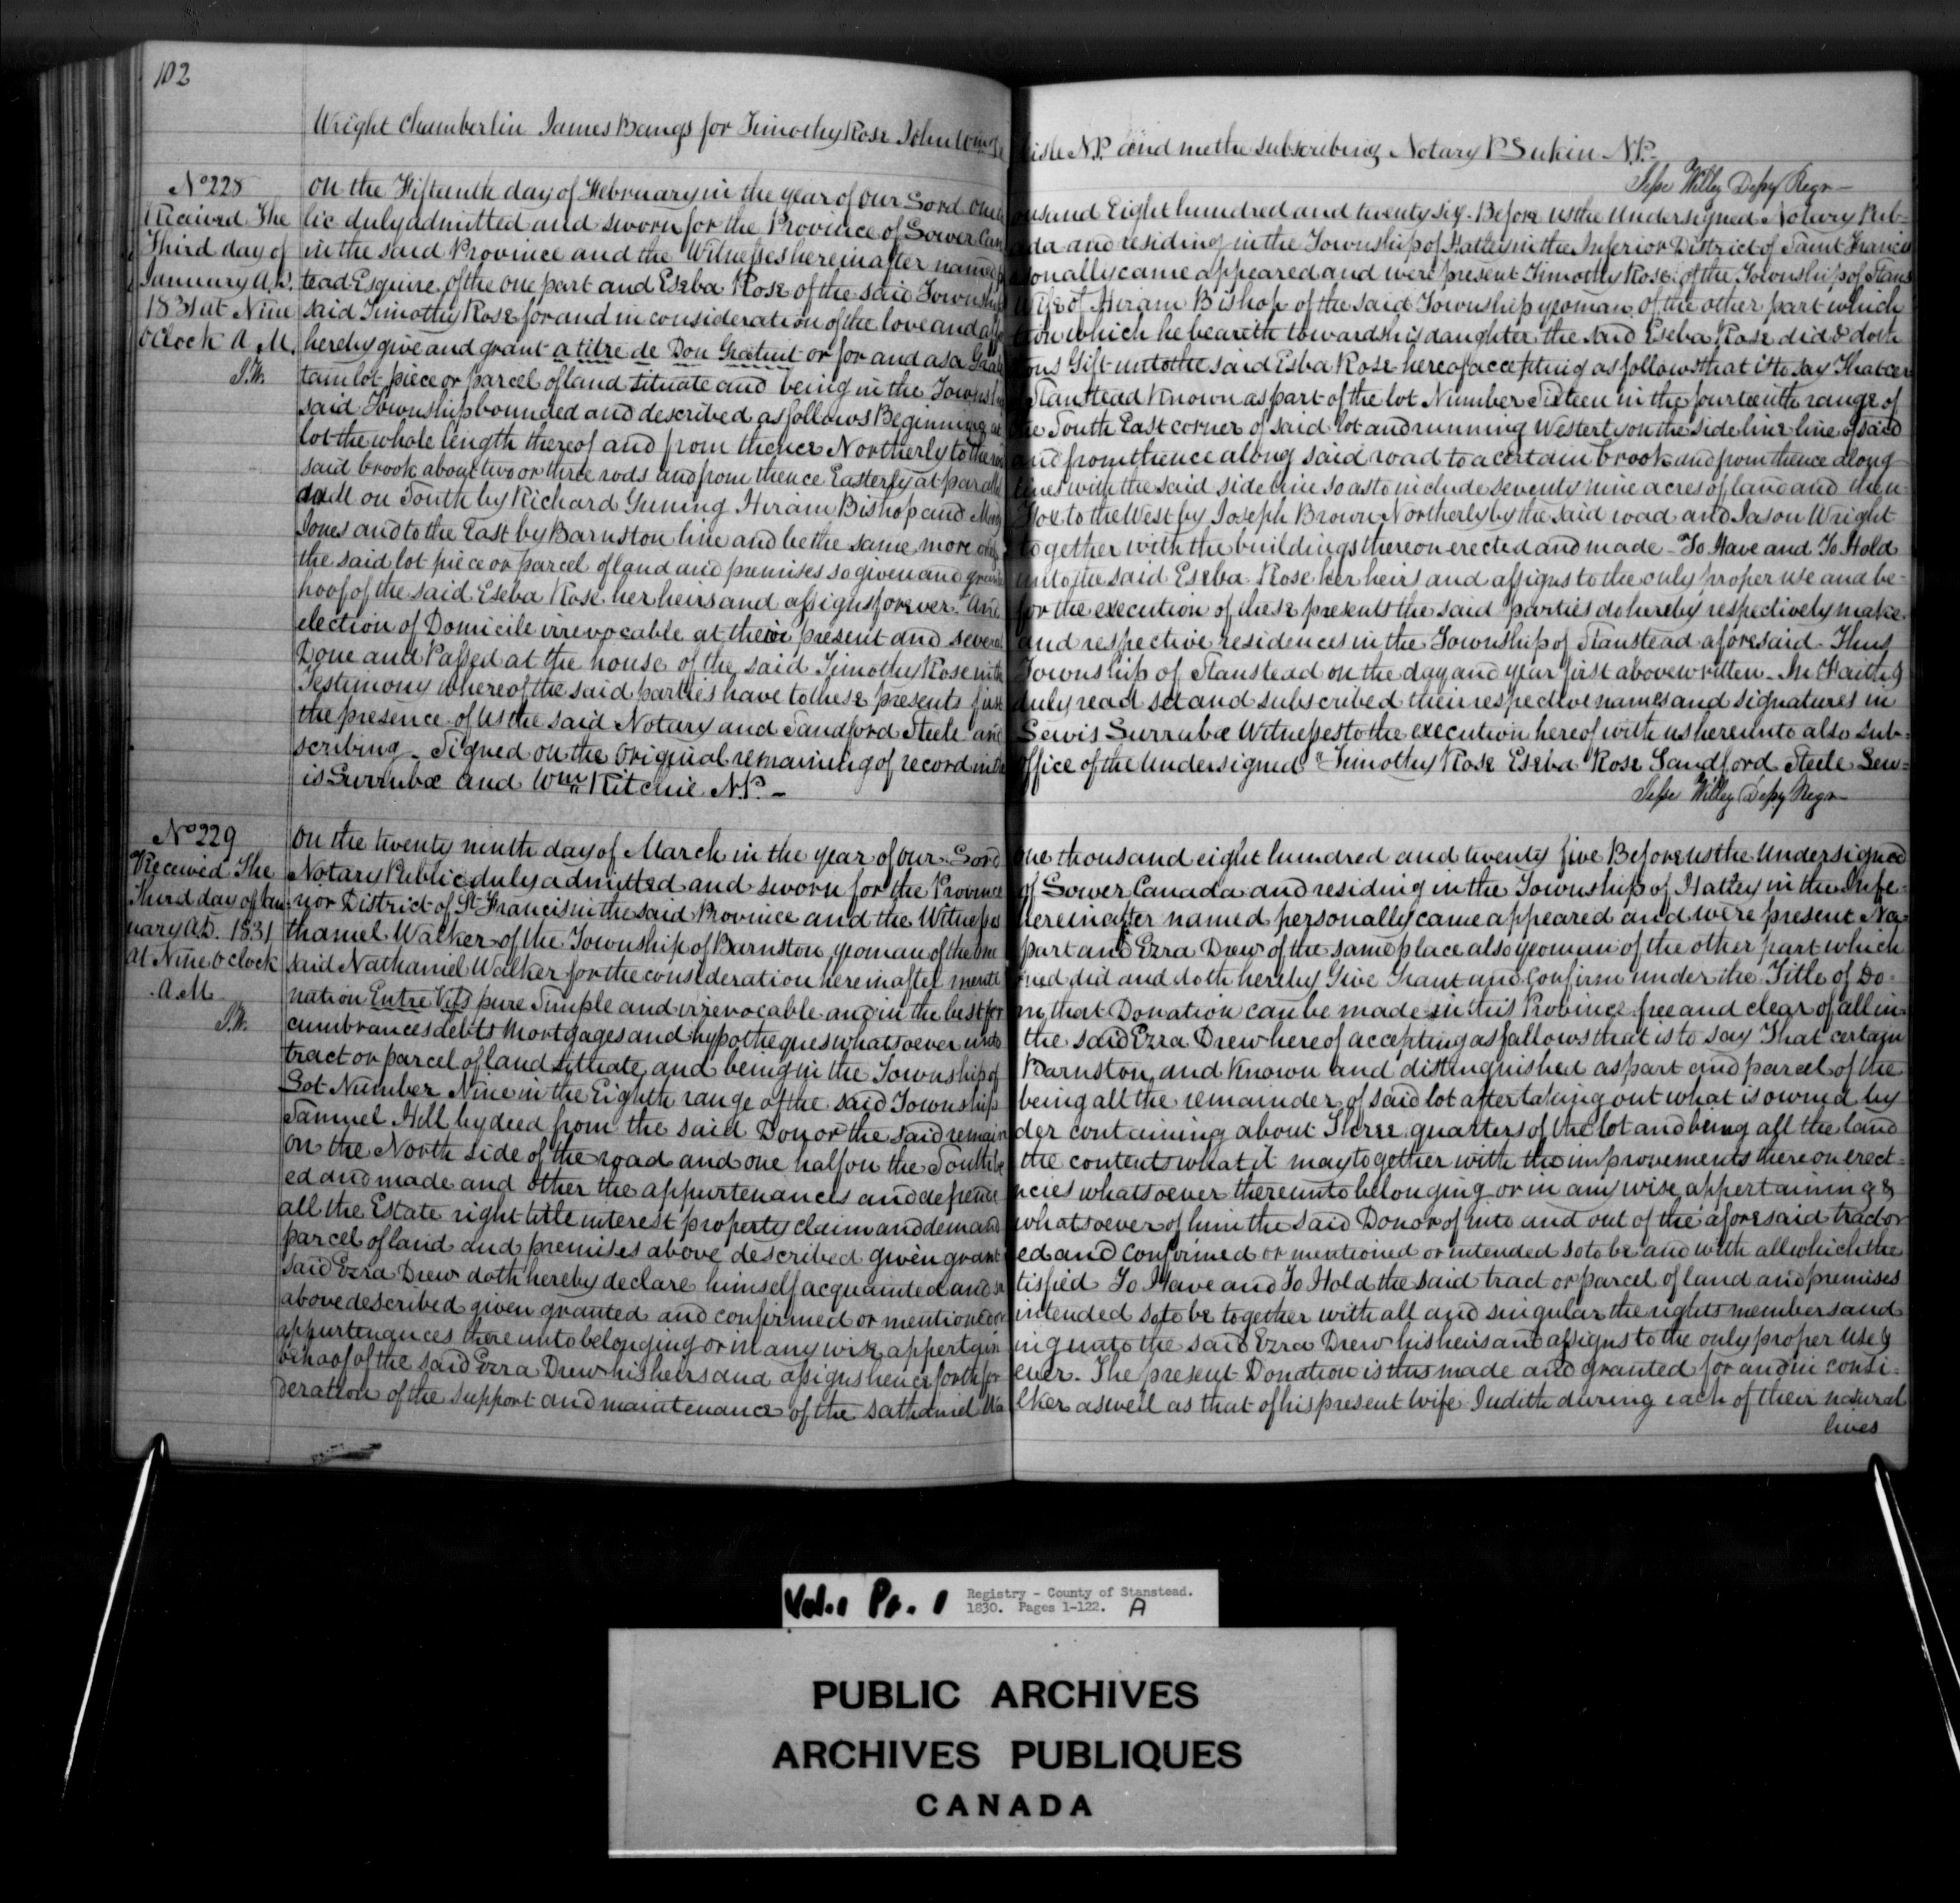 102
Wright Chamberlin James Bangs for Timothy Rose John
N.P. and me the subscribing Notary P Sukin N.P.
Jesse Willey Depy Regr
No 228
Received The
Third day of
January A.D.
1831 at Nine
oClock A M.
J.W.
On the Fifteenth day of February in the year of our Lord One thousand Eight hundred and twenty six. Before us the Undersigned Notary Pub-
lic duly admitted and sworn for the Province of Lower Canada and residing in the Township of Hatley in the Inferior District of Saint Francis
in the said Province and the Witnesses hereinafter named personally came appeared and were present Timothy Rose of the Township of Stans
tead Esquire, of the one part and Eseba Rose of the said Township Wife of Hiram Bishop of the said Township yeoman of the other part which
said Timothy Rose for and in consideration of the love and affection which he beareth towards his daughter the said Eseba Rose did & doth
hereby give and grant a titre de Don Gratuit or for and as a Gratuitous Gift unto the said Esba Rose hereof accepting as follows that is to say That cer
tain lot piece or parcel of land situate and being in the Township Stanstead Known as part of the lot Number Sixteen in the fourteenth range of
said Township bounded and described as follows Beginning at the South East corner of said lot and running Westerly on the side line line of said
lot the whole length thereof and from thence Northerly to the road and from thence along said road to a certain brook and from thence along
said brook about two or three rods and from thence Easterly at parallel lines with the said side line so as to include seventy nine acres of land and then
on South by Richard Gruning Hiram Bishop and to the West by Joseph Brown Northerly by the said road and Jason Wright
Jones and to the East by Barnston line and be the same more or less together with the buildings thereon erected and made - To Have and To Hold
the said lot piece or parcel of land and premises so given and granted unto the said Eseba Rose her heirs and assigns to the only proper use and be-
hoof of the said Eseba Rose her heirs and assigns forever. And for the execution of these presents the said parties do hereby respectively make
election of Domicile irrevocable at their present and several and respective residences in the Township of Stanstead aforesaid. Thus
Done and Passed at the house of the said Timothy Rose in the Township of Stanstead on the day and year first above written. In Faith &
Testimony whereof the said parties have to these presents first duly read set and subscribed their respective names and signatures in
the presence of us the said Notary and Sandford Steele and Lewis Surrubæ Witnesses to the execution hereof with us hereunto also sub-
scribing. Signed on the Original remaining of record in the Office of the Undersigned "Timothy Rose Eseba Rose Sandford Steele Lew=
is Surrubæ and Wm Ritchie N.P. -
Jesse Willey Depy Regr
No 229
Received The
Third day of Jan-
uary A.D. 1831
at Nine o'clock
A.M.
J.W.
On the twenty ninth day of March in the year of our Lord One thousand eight hundred and twenty five Before us the Undersigned
Notary Public duly admitted and sworn for the Province of Lower Canada and residing in the Township of Hatley in the Infe-
rior District of St Francis in the said Province and the Witnesses hereinafter named personally came appeared and were present Na-
thaniel Walker of the Township of Barnston yeoman of the one part and Ezra Drew of the same place also yeoman of the other part which
said Nathaniel Walker for the consideration hereinafter mentioned did and doth hereby Give Grant and Confirm under the Title of Do-
nation Entre Vifs pure Simple and irrevocable and in the best form that Donation can be made in this Province free and clear of all in
cumbrances debts Mortgages and hypotheques whatsoever unto the said Ezra Drew hereof accepting as follows that is to say That certain
tract or parcel of land situate and being in the Township of Barnston and Known and distinguished as part and parcel of the
Lot Number Nine in the Eighth range of the said Township being all the remainder of said lot after taking out what is owned by
Samuel Hill by deed from the said Donor the said remainder containing about Three quarters of the lot and being all the land
on the North side of the road and one half on the South the contents what it may together with the improvements thereon erect-
ed and made and other the appurtenances and dependencies whatsoever thereunto belonging or in any wise appertaining &
all the Estate right title interest property claim and demand whatsoever of him the said Donor of into and out of the aforesaid tract or
parcel of land and premises above described given granted and confirmed or mentioned or intended so to be and with all which the
said Ezra Drew doth hereby declare himself acquainted and satisfied To Have and To Hold the said tract or parcel of land and premises
above described given granted and confirmed or mentioned or intended so to be together with all and singular the rights members and
appurtenances thereunto belonging or in any wise appertaining unto the said Ezra Drew his heirs and assigns to the only proper use &
behoof of the said Ezra Drew his heirs and assigns henceforth for ever. The present Donation is thus made and granted for and in consi-
deration of the support and maintenance of the sathaniel Walker as well as that of his present wife Judith during each of their natural
lives
Vol. 1 Pt. 1 Registry - County of Stanstead.
1830. Pages 1-122. A
PUBLIC ARCHIVES
ARCHIVES PUBLIQUES
CANADA